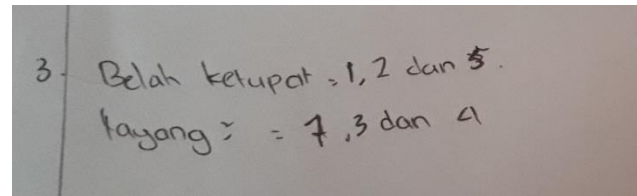 3. Belah ketupat = 1, 2 dan 5.
layang² = 7, 3 dan 4